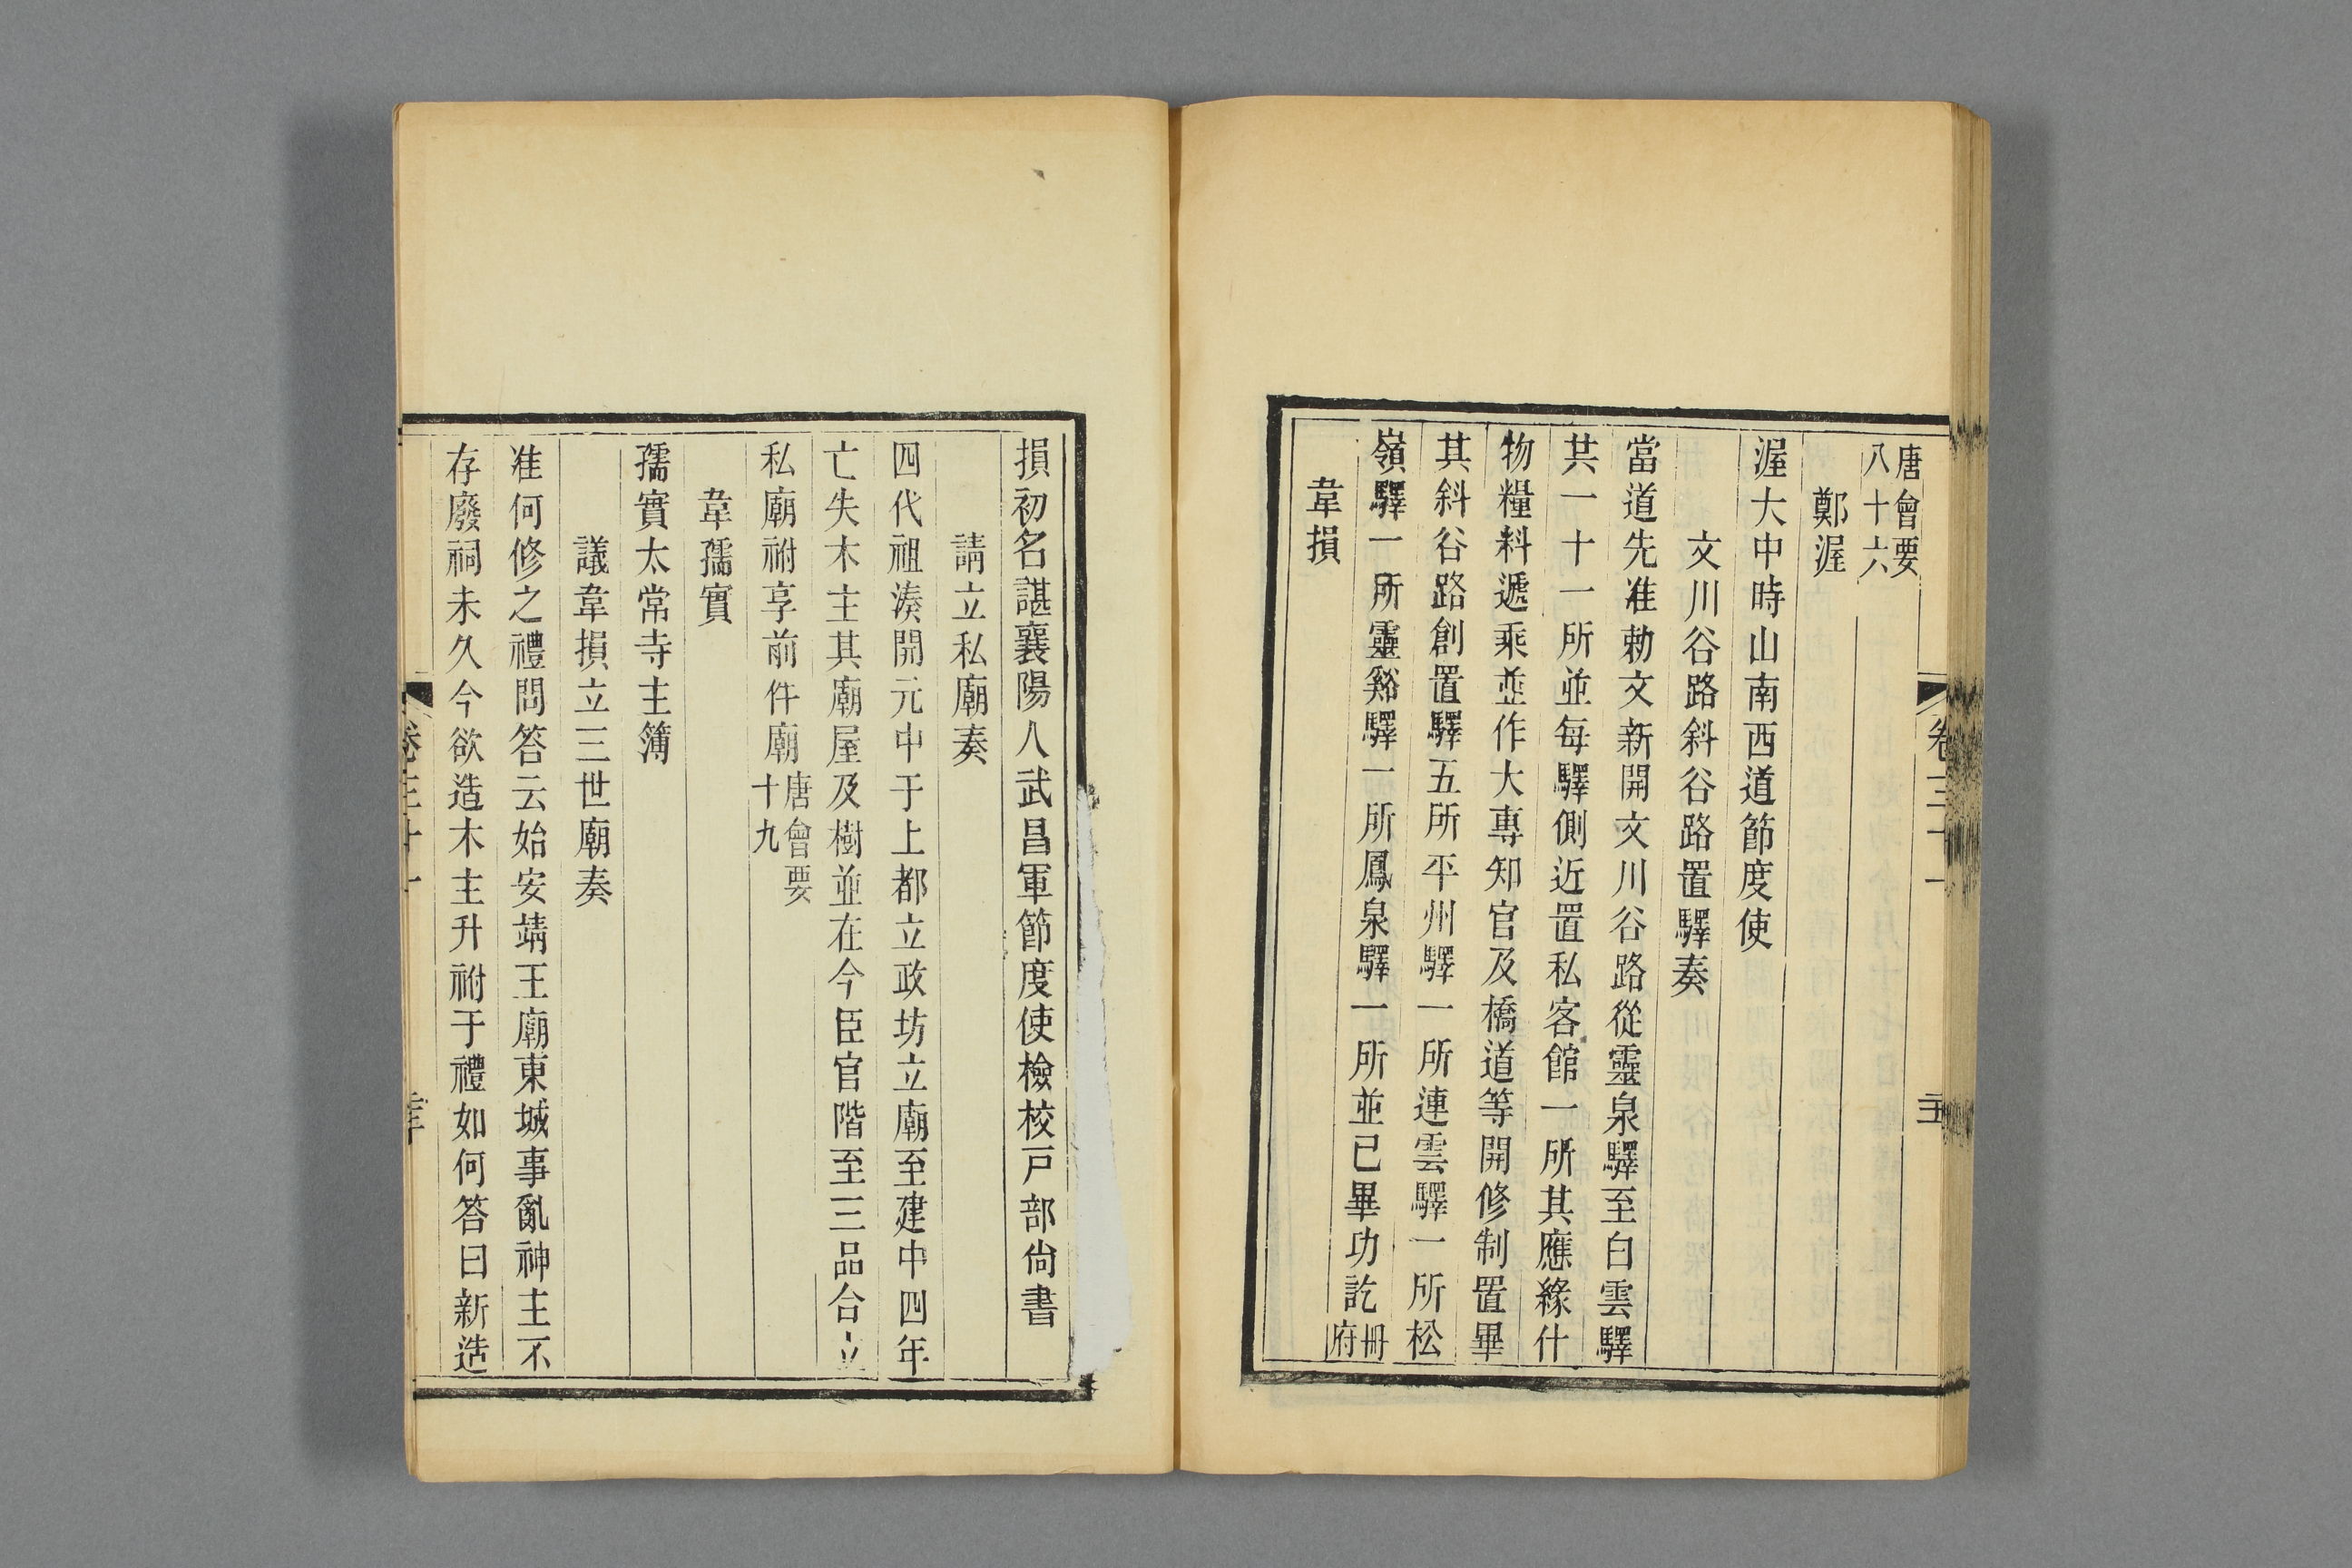 唐會要
八十六
鄭渥
渥大中時山南西道節度使
文川谷路斜谷路置驛奏
當道先准勅文新開文川谷路從靈泉驛至白雲驛
共一十一所並每驛側近置私客館一所其應緣什
物糧料遞乘並作大專知官及橋道等開修制置畢
其斜谷路創置驛五所平州驛一所連雲驛一所松
嶺驛一所靈谿驛一所鳳泉驛一所並已畢功訖冊
府
韋損
卷三十一
損初名諶襄陽人武昌軍節度使檢校戸部尙書
請立私廟奏
四代祖湊開元中于上都立政坊立廟至建中四年
亡失木主其廟屋及樹並在今臣官階至三品合立
私廟祔享前件廟唐會要
十九
韋孺實
孺實太常寺主簿
議韋損立三世廟奏
准何修之禮問答云始安靖王廟東城事亂神主不
存廢祠未久今欲造木主升祔于禮如何答曰新造